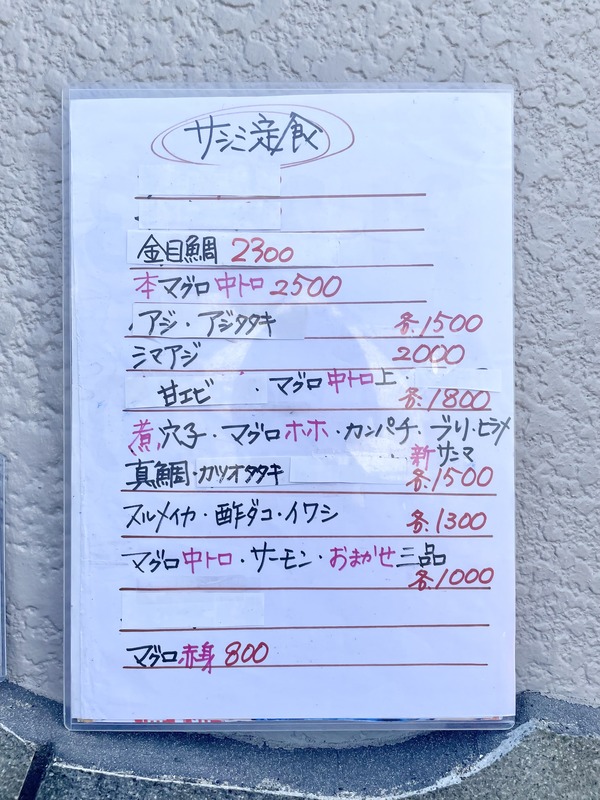 サシミ定食
金目鯛 2300
本マグロ中トロ 2500
アジ・アジタタキ 各1500
シマアジ 2000
甘エビ ・マグロ中トロ上・ 各1800
煮穴子・マグロホホ・カンパチ・ブリ・ヒラメ
新サンマ
真鯛・カツオタタキ 各1500
スルメイカ・酢ダコ・イワシ 各1300
マグロ中トロ・サーモン・おまかせ三品
各1000
マグロ赤身 800